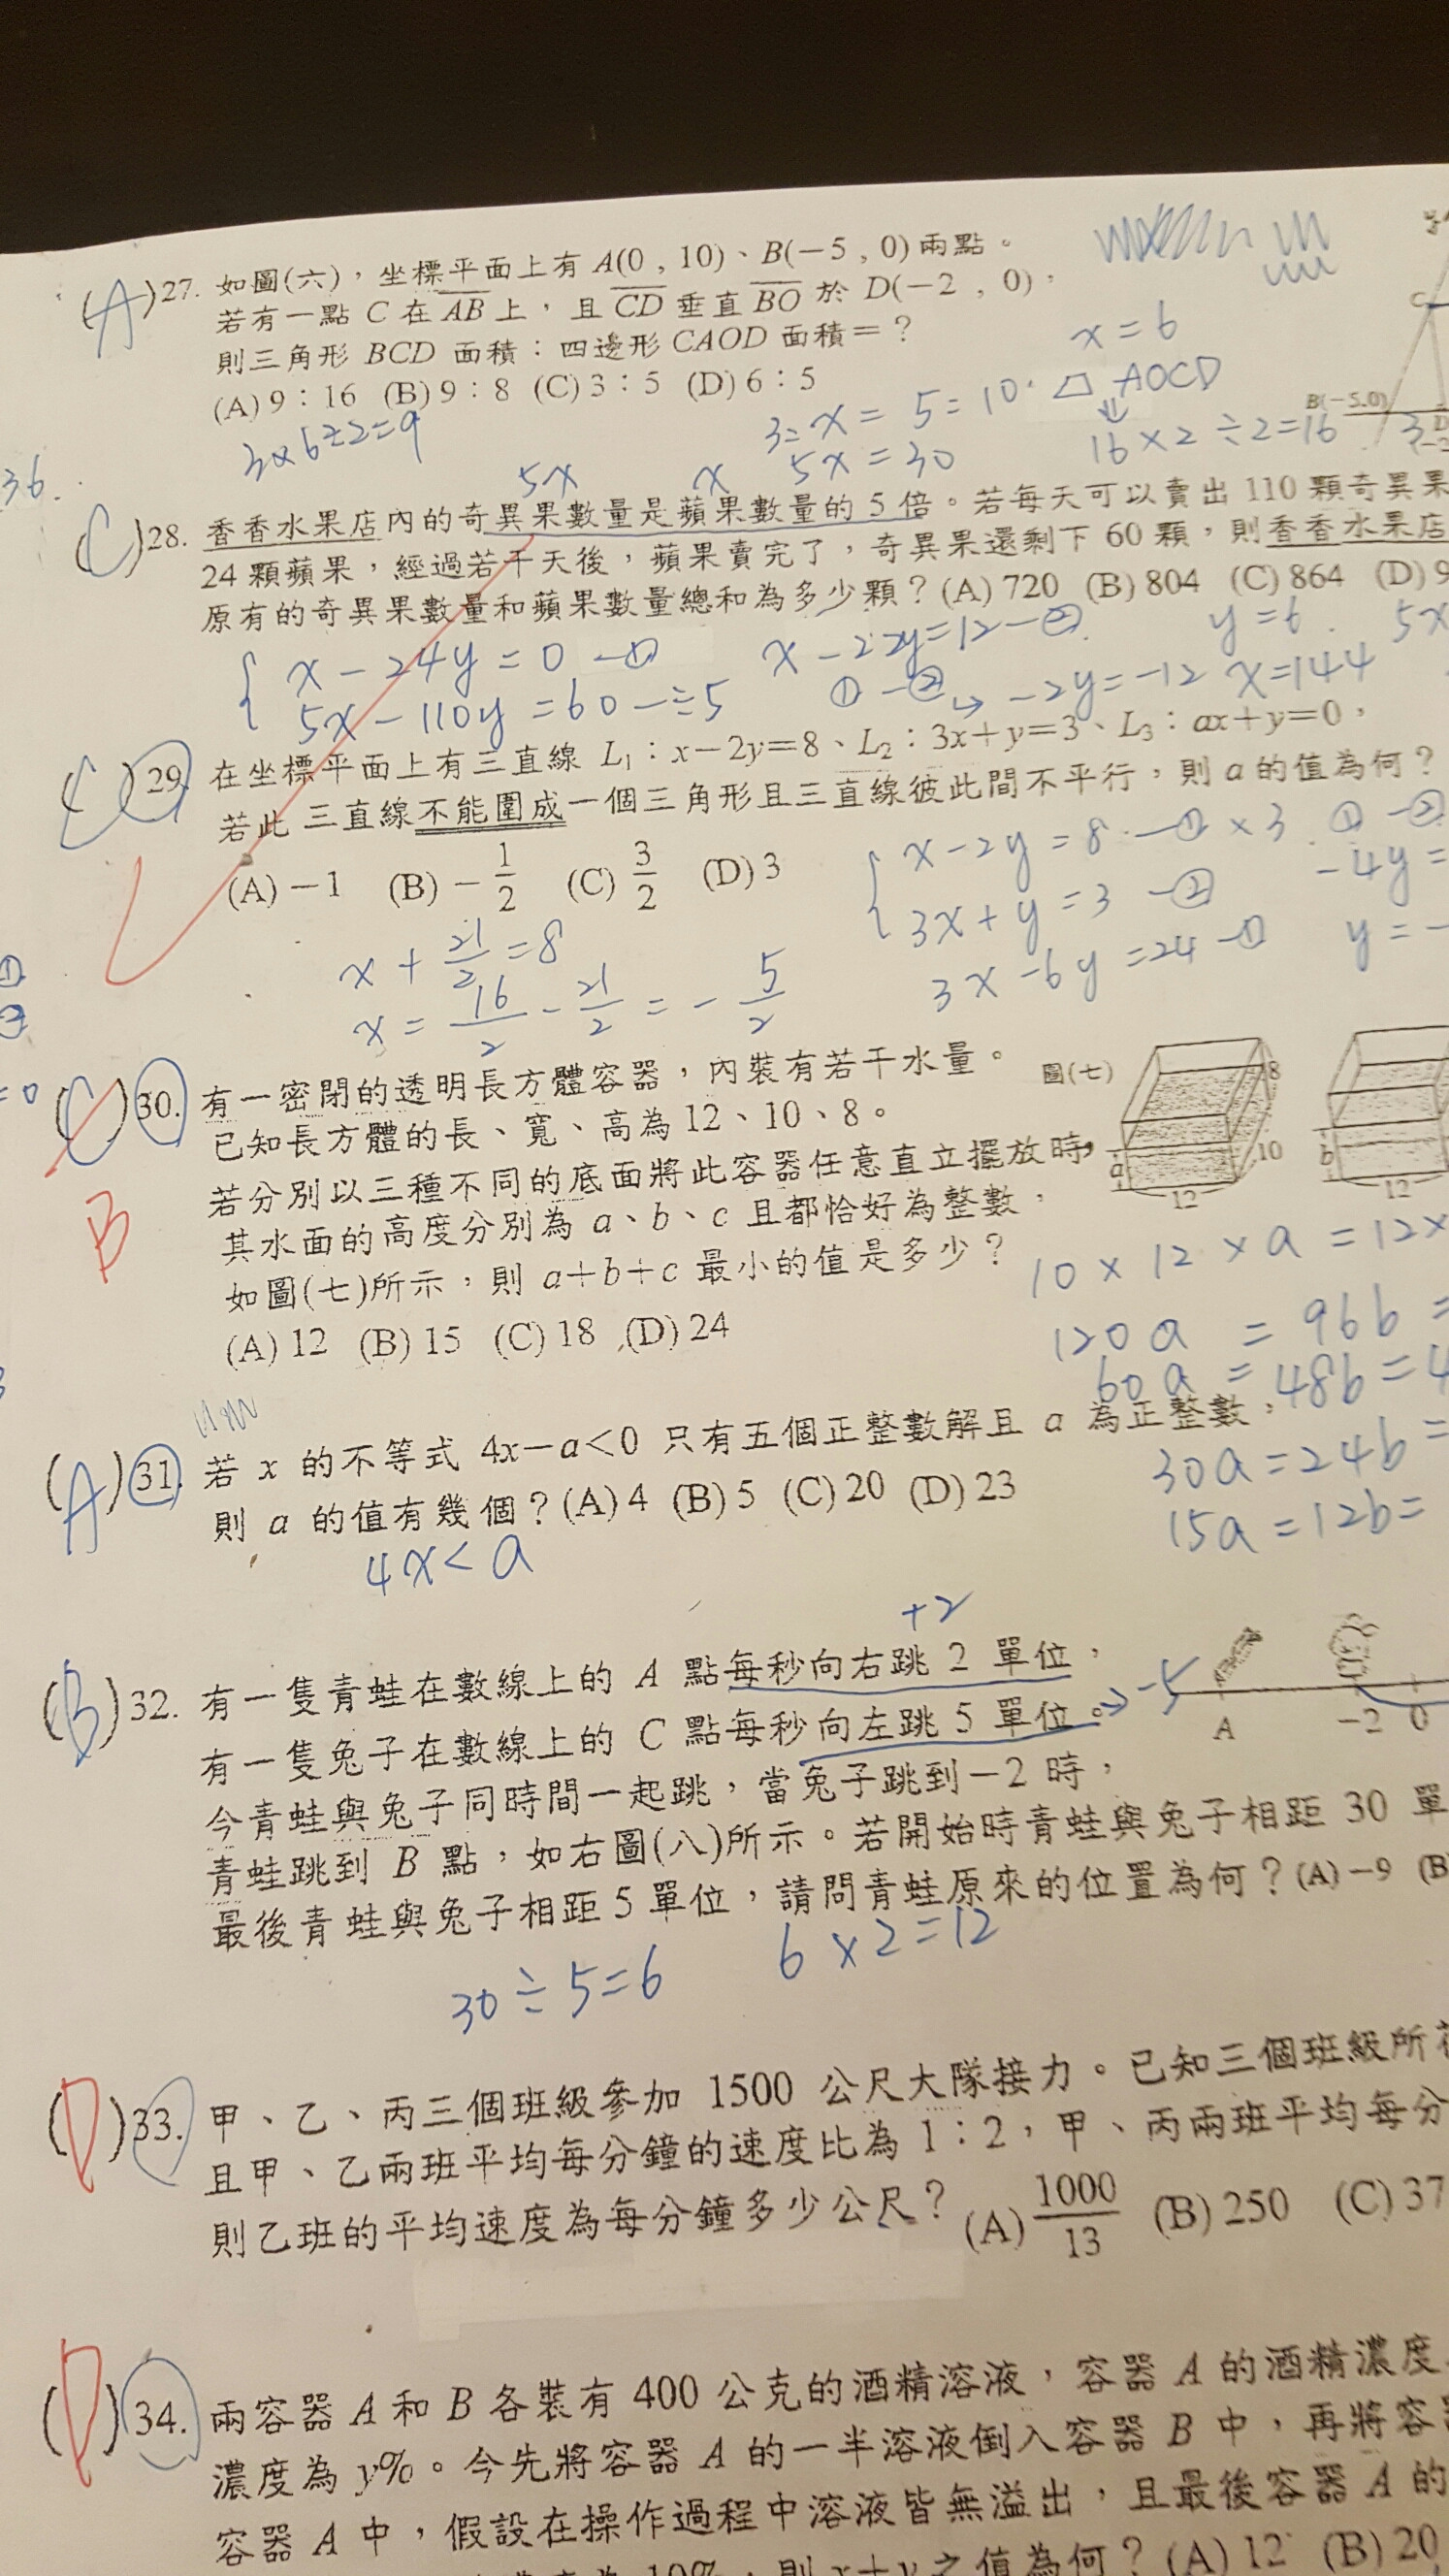 (A)27. 如圖(六)，坐標平面上有 A(0 , 10)、B(−5 , 0) 兩點。
若有一點 C 在 AB 上，且 CD 垂直 BO 於 D(−2 , 0)，
則三角形 BCD 面積：四邊形 CAOD 面積＝？
(A) 9：16 (B) 9：8 (C) 3：5 (D) 6：5
3×6÷2=9
x=6
3:x = 5=10
5x=30
AOCD
16×2÷2=16
C
B(−5.0)
3
36.
5x
x
(C)28. 香香水果店內的奇異果數量是蘋果數量的 5 倍。若每天可以賣出 110 顆奇異果
24 顆蘋果，經過若干天後，蘋果賣完了，奇異果還剩下 60 顆，則香香水果店
原有的奇異果數量和蘋果數量總和為多少顆？(A) 720 (B) 804 (C) 864 (D) 9
x−24y=0−①
5x−110y=60−÷5
x−22y=12−②
①−②→−2y=−12
y=6
x=144
5x
(C)29. 在坐標平面上有三直線 L1：x−2y=8、L2：3x+y=3、L3：ax+y=0，
若此三直線不能圍成一個三角形且三直線彼此間不平行，則 a 的值為何？
(A) −1 (B) −1/2 (C) 3/2 (D) 3
x−2y=8−①×3
3x+y=3−②
3x−6y=24−①
①−②
−4y=
y=−
x+21/2=8
x=16/2−21/2=−5/2
①
②
=0
(C)30. 有一密閉的透明長方體容器，內裝有若干水量。
B
已知長方體的長、寬、高為 12、10、8。
若分別以三種不同的底面將此容器任意直立擺放時，
其水面的高度分別為 a、b、c 且都恰好為整數，
如圖(七)所示，則 a+b+c 最小的值是多少？
(A) 12 (B) 15 (C) 18 (D) 24
圖(七)
8
10
a
12
b
12
10×12×a=12×
120a=96b=
60a=48b=4
30a=24b=
15a=12b=
(A)31. 若 x 的不等式 4x−a<0 只有五個正整數解且 a 為正整數，
則 a 的值有幾個？(A) 4 (B) 5 (C) 20 (D) 23
4x<a
+2
(B)32. 有一隻青蛙在數線上的 A 點每秒向右跳 2 單位，
有一隻兔子在數線上的 C 點每秒向左跳 5 單位。→−5
今青蛙與兔子同時間一起跳，當兔子跳到−2 時，
青蛙跳到 B 點，如右圖(八)所示。若開始時青蛙與兔子相距 30 單
最後青蛙與兔子相距 5 單位，請問青蛙原來的位置為何？(A) −9 (B
A
−2
0
30÷5=6
6×2=12
(D)33. 甲、乙、丙三個班級參加 1500 公尺大隊接力。已知三個班級所
且甲、乙兩班平均每分鐘的速度比為 1：2，甲、丙兩班平均每分
則乙班的平均速度為每分鐘多少公尺？(A) 1000/13 (B) 250 (C) 37
(D)34. 兩容器 A 和 B 各裝有 400 公克的酒精溶液，容器 A 的酒精濃度
濃度為 y%。今先將容器 A 的一半溶液倒入容器 B 中，再將容
容器 A 中，假設在操作過程中溶液皆無溢出，且最後容器 A 的
10%，則 x+y 之值為何？(A) 12 (B) 20